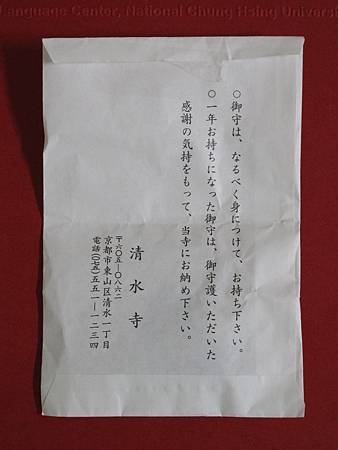 Language Center, National Chung Hsing Universi
○御守は、なるべく身につけて、お持ち下さい。
○一年お持ちになった御守は、御守護いただいた
感謝の気持をもって、当寺にお納め下さい。
清水寺
〒六〇五―〇八六二
京都市東山区清水一丁目
電話(〇七五)五五一―一二三四